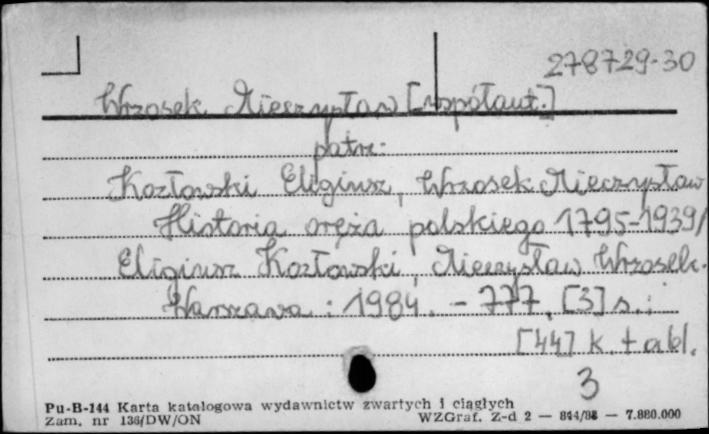 278729-30
Wrzosek Mieczysław [współaut.]
patrz:
Kozłowski Eligiusz, Wrzosek Mieczysław
Historia oręża polskiego 1795-1939/
Eligiusz Kozłowski, Mieczysław Wrzosek.
Warszawa : 1984. - 777, [3] s. :
[44] k. tabl.
3
Pu-B-144 Karta katalogowa wydawnictw zwartych i ciągłych
Zam. nr 136/DW/ON WZGraf. Z-d 2 — 844/88 — 7.880.000